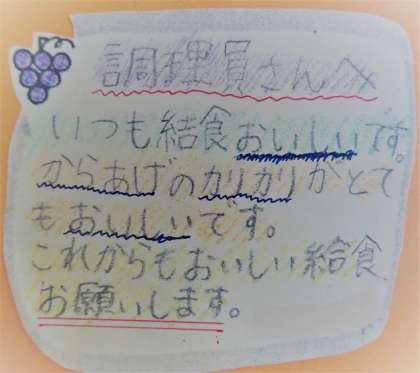 調理員さんへ
いつも給食おいしいです。
からあげのカリカリがとて
もおいしいです。
これからもおいしい給食
お願いします。